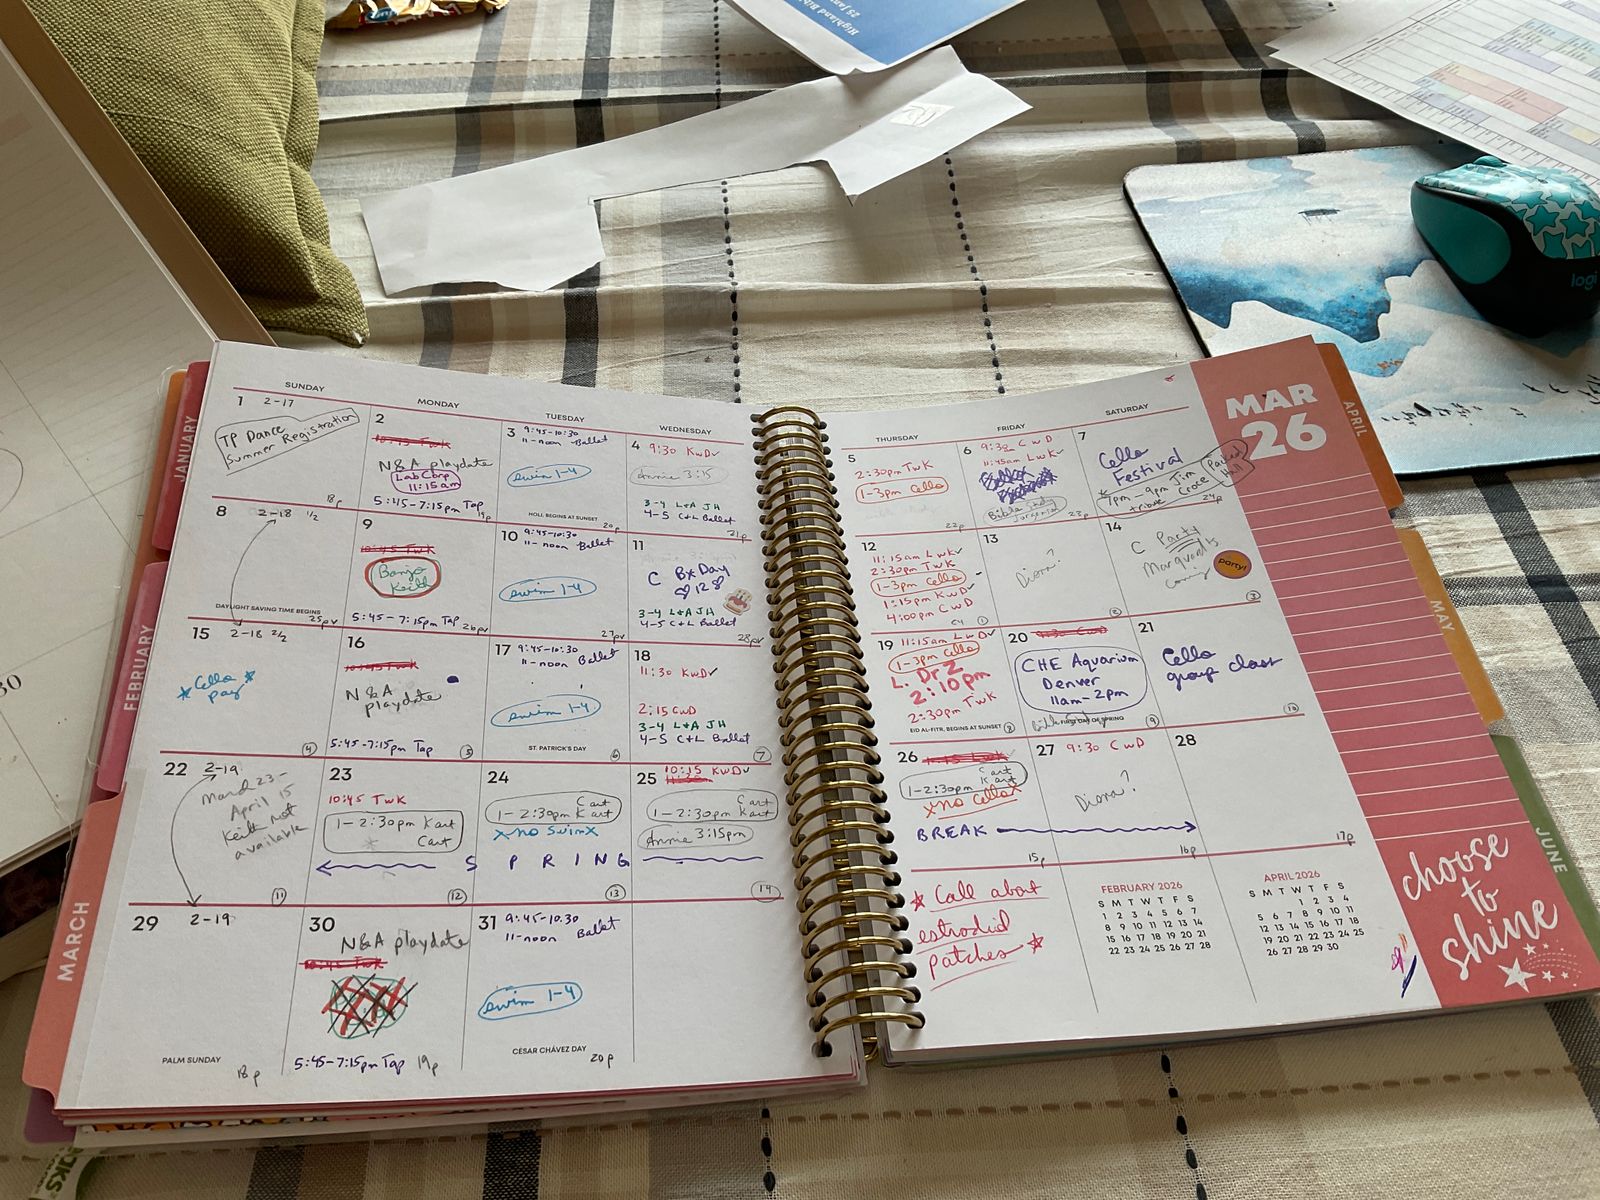 Highland Bibl
25 Jan
logi
JANUARY
FEBRUARY
MARCH
APRIL
MAY
JUNE
30
MAR
26
choose
to
shine
SUNDAY
MONDAY
TUESDAY
WEDNESDAY
THURSDAY
FRIDAY
SATURDAY
1 2-17
TP Dance
Summer Registration
18p
2
10:45 TwK
N&A playdate
LabCorp
11:15am
5:45-7:15pm Tap
19p
3 9:45-10:30
11-noon Ballet
swim 1-4
HOLI, BEGINS AT SUNSET
20p
4 9:30 KwD✓
Annie 3:15
3-4 L+A JH
4-5 C+L Ballet
21p
5
2:30pm TwK
1-3pm Cello
22p
6 9:30 CwD
11:45am LwK✓
Bible Study
23p
7
Cello
Festival
*7pm-9pm Jim
Croce
tribute
Packard
Hall
24p
8 2-18 1/2
DAYLIGHT SAVING TIME BEGINS
25pv
9
10:45 TwK
Banjo
Keith
5:45-7:15pm Tap
26pv
10 9:45-10:30
11-noon Ballet
swim 1-4
27pv
11
C BxDay
♡12
3-4 L+A JH
4-5 C+L Ballet
28pv
12
11:15am LwK✓
2:30pm TwK
1-3pm Cello
1:15pm KwD✓
4:00pm CwD
①
13
Diana?
②
14
C Party
Marquardts
coming
party!
③
15 2-18 2/2
*Cello
pay*
④
16
10:45 TwK
N&A
playdate
5:45-7:15pm Tap
⑤
17 9:45-10:30
11-noon Ballet
swim 1-4
ST. PATRICK'S DAY
⑥
18
11:30 KwD✓
2:15 CwD
3-4 L+A JH
4-5 C+L Ballet
⑦
19 11:15am LwD✓
1-3pm Cello
L. Dr Z
2:10pm
2:30pm TwK
EID AL-FITR, BEGINS AT SUNSET
⑧
20 9:30 CwD
CHE Aquarium
Denver
11am-2pm
FIRST DAY OF SPRING
⑨
21
Cello
group class
⑩
22 2-19
March 23-
April 15
Keith not
available
⑪
23
10:45 TwK
1-2:30pm K art
C art
⑫
24
C art
1-2:30pm K art
xno Swimx
⑬
25 10:15 KwD✓
C art
1-2:30pm K art
Annie 3:15pm
⑭
S P R I N G
26
C art
K art
1-2:30pm
xno cellox
BREAK
15p
27 9:30 CwD
Diana?
16p
28
17p
29 2-19
PALM SUNDAY
18p
30
N&A playdate
10:45 TwK
5:45-7:15pm Tap 19p
31 9:45-10:30
11-noon Ballet
swim 1-4
CÉSAR CHÁVEZ DAY
20p
*Call about
estrodiol
patches*
FEBRUARY 2026
S M T W T F S
1 2 3 4 5 6 7
8 9 10 11 12 13 14
15 16 17 18 19 20 21
22 23 24 25 26 27 28
APRIL 2026
S M T W T F S
1 2 3 4
5 6 7 8 9 10 11
12 13 14 15 16 17 18
19 20 21 22 23 24 25
26 27 28 29 30